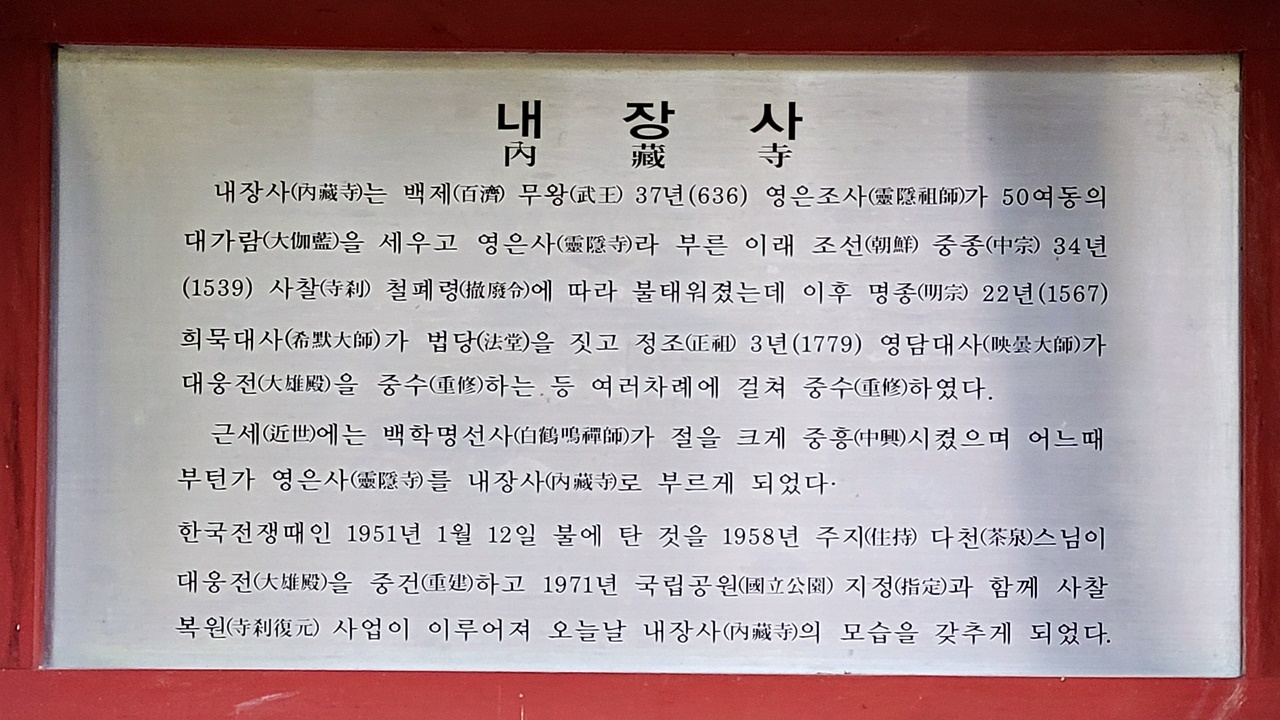 내 장 사
內 藏 寺
내장사(內藏寺)는 백제(百濟) 무왕(武王) 37년(636) 영은조사(靈隱祖師)가 50여동의
대가람(大伽藍)을 세우고 영은사(靈隱寺)라 부른 이래 조선(朝鮮) 중종(中宗) 34년
(1539) 사찰(寺刹) 철폐령(撤廢令)에 따라 불태워졌는데 이후 명종(明宗) 22년(1567)
희묵대사(希默大師)가 법당(法堂)을 짓고 정조(正祖) 3년(1779) 영담대사(映曇大師)가
대웅전(大雄殿)을 중수(重修)하는 등 여러차례에 걸쳐 중수(重修)하였다.
근세(近世)에는 백학명선사(白鶴鳴禪師)가 절을 크게 중흥(中興)시켰으며 어느때
부턴가 영은사(靈隱寺)를 내장사(內藏寺)로 부르게 되었다·
한국전쟁때인 1951년 1월 12일 불에 탄 것을 1958년 주지(住持) 다천(茶泉)스님이
대웅전(大雄殿)을 중건(重建)하고 1971년 국립공원(國立公園) 지정(指定)과 함께 사찰
복원(寺刹復元) 사업이 이루어져 오늘날 내장사(內藏寺)의 모습을 갖추게 되었다.